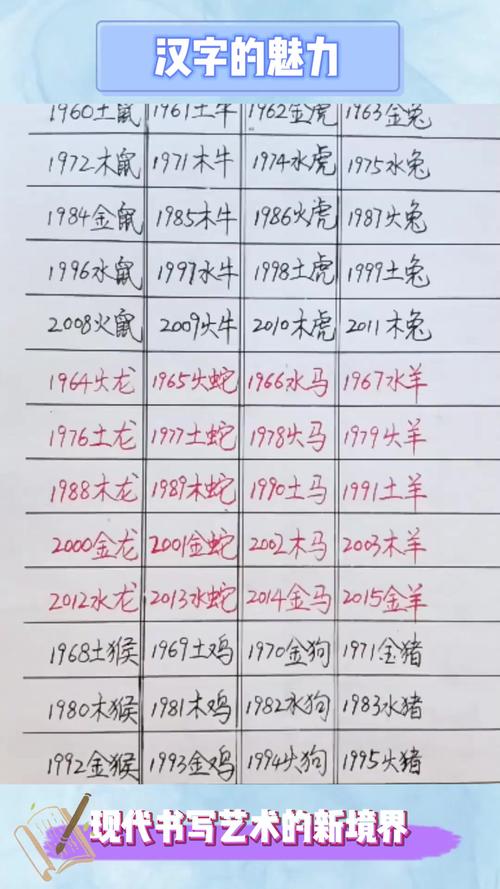 汉字的魅力
1960土鼠 1961土牛 1962金虎 1963金兔
1972木鼠 1971木牛 1974水虎 1975水兔
1984金鼠 1985木牛 1986火虎 1987火兔
1996水鼠 1997水牛 1998土虎 1999土兔
2008火鼠 2009火牛 2010木虎 2011木兔
1964火龙 1965火蛇 1966水马 1967水羊
1976土龙 1977土蛇 1978火马 1979火羊
1988木龙 1989木蛇 1990土马 1991土羊
2000金龙 2001金蛇 2002木马 2003木羊
2012水龙 2013水蛇 2014金马 2015金羊
1968土猴 1969土鸡 1970金狗 1971金猪
1980木猴 1981木鸡 1982水狗 1983水猪
1992金猴 1993金鸡 1994火狗 1995火猪
现代书写艺术的新境界